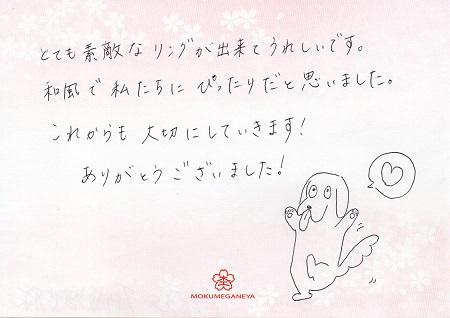 とても素敵なリングが出来てうれしいです。
和風で私たちにぴったりだと思いました。
これからも大切にしていきます！
ありがとうございました！
MOKUMEGANEYA